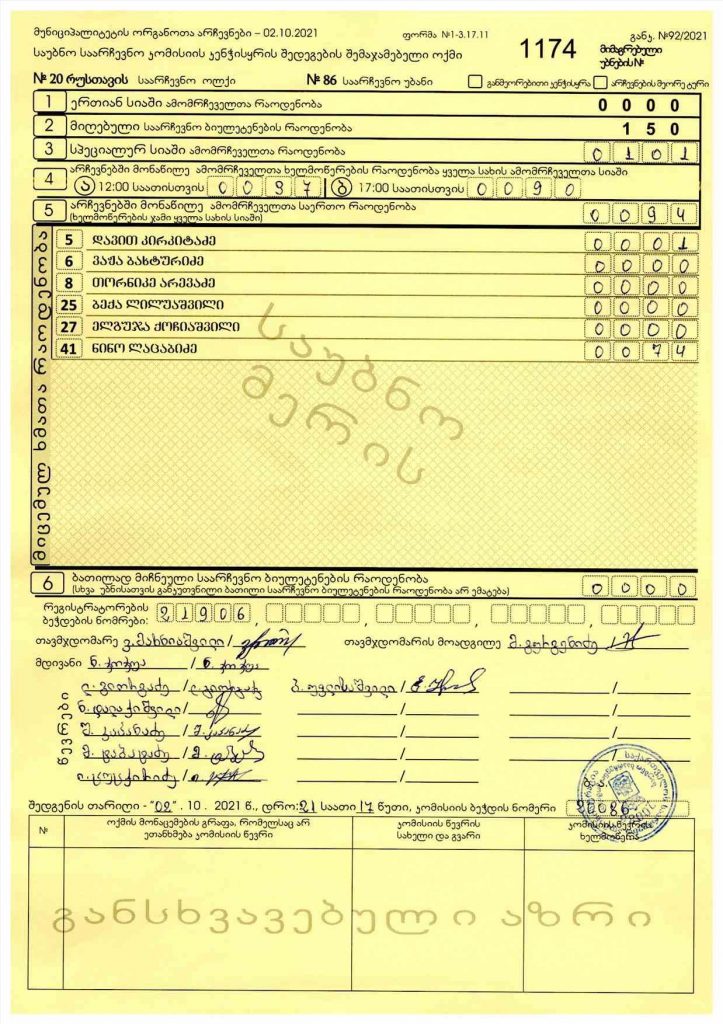 მუნიციპალიტეტის ორგანოთა არჩევნები – 02.10.2021 ფორმა №1-3.17.11 განკ. №92/2021
საუბნო საარჩევნო კომისიის კენჭისყრის შედეგების შემაჯამებელი ოქმი 1174 მიმაგრებული უბნების №
№ 20 რუსთავის საარჩევნო ოლქი № 86 საარჩევნო უბანი განმეორებითი კენჭისყრა არჩევნების მეორე ტური
1 ერთიან სიაში ამომრჩეველთა რაოდენობა 0 0 0 0
2 მიღებული საარჩევნო ბიულეტენების რაოდენობა 1 5 0
3 სპეციალურ სიაში ამომრჩეველთა რაოდენობა 0 1 0 1
4 არჩევნებში მონაწილე ამომრჩეველთა ხელმოწერების რაოდენობა ყველა სახის ამომრჩეველთა სიაში
ა 12:00 საათისთვის 0 0 3 7 ბ 17:00 საათისთვის 0 0 9 0
5 არჩევნებში მონაწილე ამომრჩეველთა საერთო რაოდენობა 0 0 9 4
(ხელმოწერების ჯამი ყველა სახის სიაში)
მიცემულ ხმათა რაოდენობა
5 დავით კირკიტაძე 0 0 0 1
6 ვაჟა ბახტურიძე 0 0 0 0
8 თორნიკე არევაძე 0 0 0 0
25 ბექა ლილუაშვილი 0 0 0 0
27 ელგუჯა ქოჩიაშვილი 0 0 0 0
41 ნინო ლაცაბიძე 0 0 7 4
საუბნო
მერის
6 ბათილად მიჩნეული საარჩევნო ბიულეტენების რაოდენობა 0 0 0 0
(სხვა უბნისათვის განკუთვნილი ბათილი საარჩევნო ბიულეტენების რაოდენობა არ ემატება)
რეგისტრატორების
ბეჭდების ნომრები: 2 1 9 0 6
თავმჯდომარე თავმჯდომარის მოადგილე მ. გურგენიძე
მდივანი
წევრები
შედგენის თარიღი - "02" . 10 . 2021 წ., დრო: 21 საათი 17 წუთი, კომისიის ბეჭდის ნომერი 20086
№ ოქმის მონაცემების გრაფა, რომელსაც არ ეთანხმება კომისიის წევრი კომისიის წევრის სახელი და გვარი კომისიის წევრის ხელმოწერა
განსხვავებული აზრი